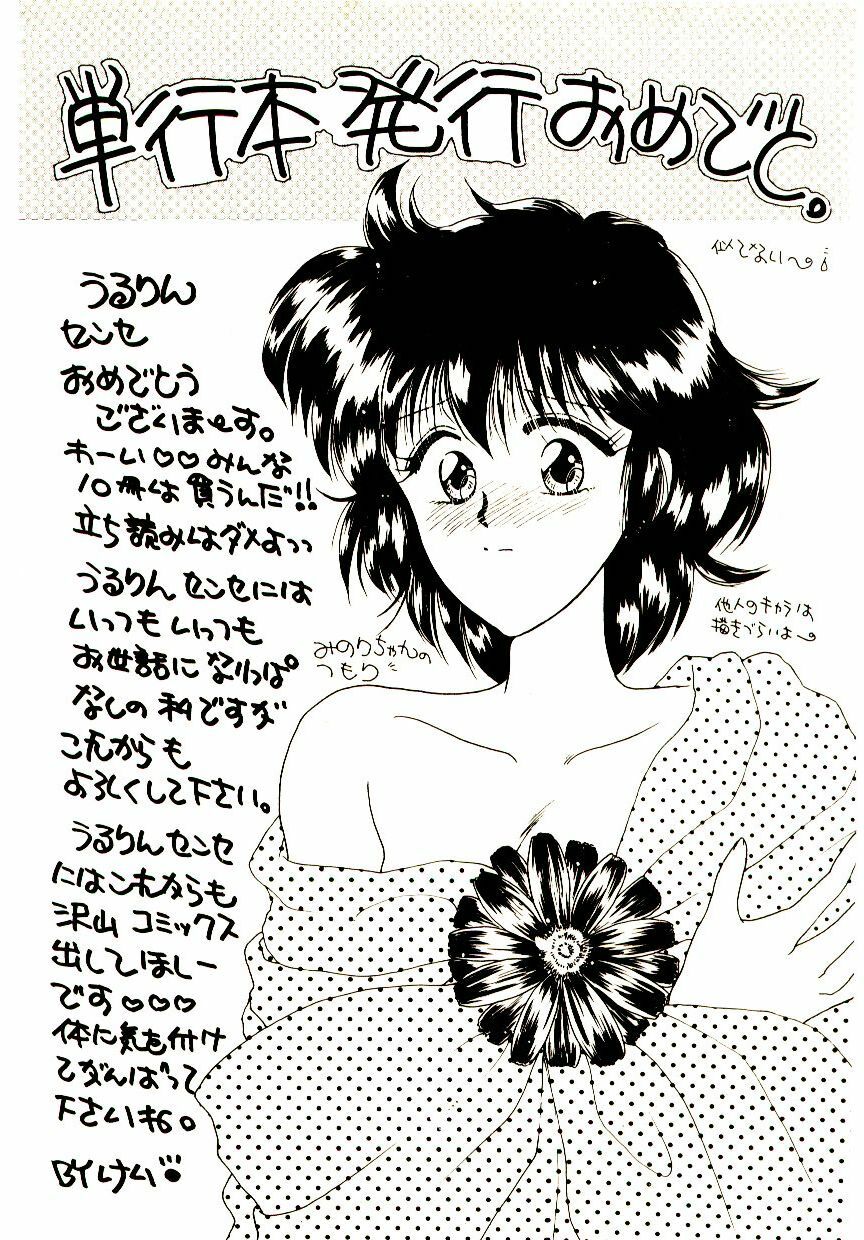 単行本発行おめでと。
似てない〜。¡
うるりん
センセ
おめでとう
ございま〜す。
わーい♡♡みんな
10冊は買うんだ!!
立ち読みはダメよっっ
うるりんセンセには
いっつもいっつも
お世話になりっぱ
なしの私ですが
これからも
よろしくして下さい。
うるりんセンセ
にはこれからも
沢山コミックス
出してほしー
です♡♡♡
体に気を付け
てがんばって
下さいね。
BYけむ
みのりちゃんの
つもり
他人のキャラは
描きづらいよ〜。